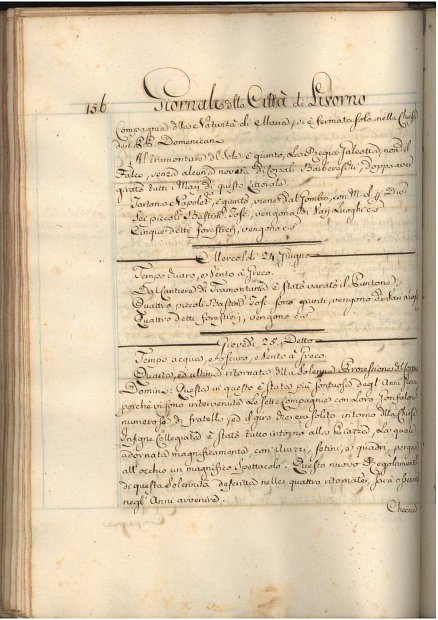 156 Giornale della Città di Livorno
Compagnia della Natività di Maria, si è fermata solo nella Chiesa
de PP. Domenicani
Al tramontare del Sole è giunto, La Regia Galeotta, nom. il
Falco, senza alcuna novità di Corsali Barbereschi, doppo aver
girato tutti i Mari di questo Littorale
Tartana Napolet. è giunto, viene dal Gombo, con M. d. g. ad u.s
Sei piccoli Bastim. Tos.e vengono di Vari Luoghi c. s
Cinque detti forestieri, vengono c. s
Mercoledì 24 Giugno
Tempo chiaro, e Vento à Greco.
Dal Cantiere di Tramontana è stato varato il Puntone
Quattro piccoli Bastim. Tosc. sono giunti, vengono di Vari
Quattro detti forestieri, vengono c. s
Giovedì 25 Detto
Tempo acqua, e oscuro, e Vento à Greco
Quarta, ed ultima ritornata della Solenne Processione del Corpus
Domini: Questa in quest'o è stata più sontuosa degl'Anni scorsi
perchè vi sono intervenute Le Sette Compagnie con Loro Gonfaloni
numerose di fratelli, ed il giro che aveva solito intorno alla Chiesa
Insigne Collegiata è stato tutto intorno alla Piazza, La quale
adornata magnificamente con Arazzi, setini, e quadri, porgeva
all'occhio un magnifico Spettacolo. Questo nuovo Regolamento
di questa Solennità eseritata nelle quattro ritornate, sarà
negl'Anni avvenire.